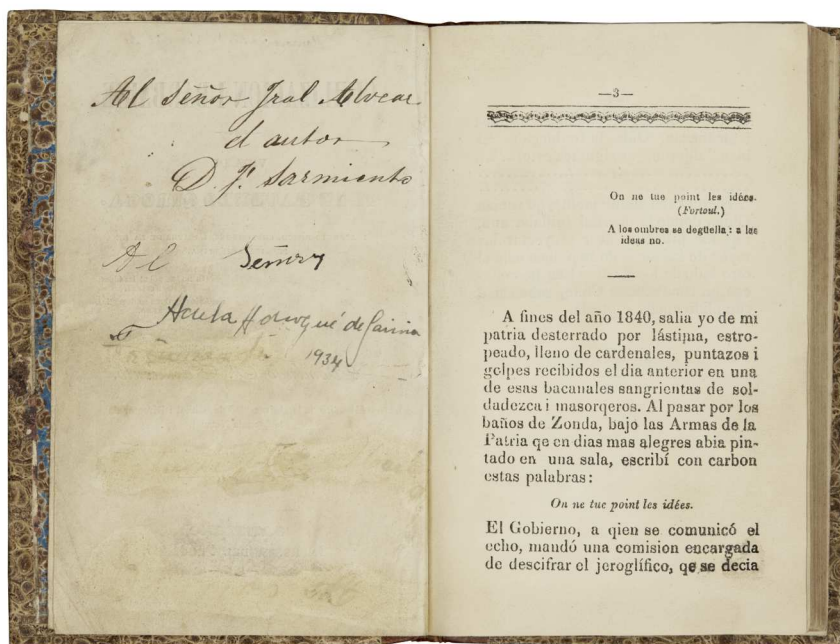 Al Señor Jral Alvear
el autor
D. F. Sarmiento
Al Señor
1934
—3—
On ne tue point les idées.
(Fortoul.)
A los ombres se degüella: a las
ideas no.
A fines del año 1840, salia yo de mi
patria desterrado por lástima, estro-
peado, lleno de cardenales, puntazos i
golpes recibidos el dia anterior en una
de esas bacanales sangrientas de sol-
dadezca i masorqeros. Al pasar por los
baños de Zonda, bajo las Armas de la
Patria qe en dias mas alegres abia pin-
tado en una sala, escribí con carbon
estas palabras:
On ne tue point les idées.
El Gobierno, a qien se comunicó el
echo, mandó una comision encargada
de descifrar el jeroglífico, qe se decia